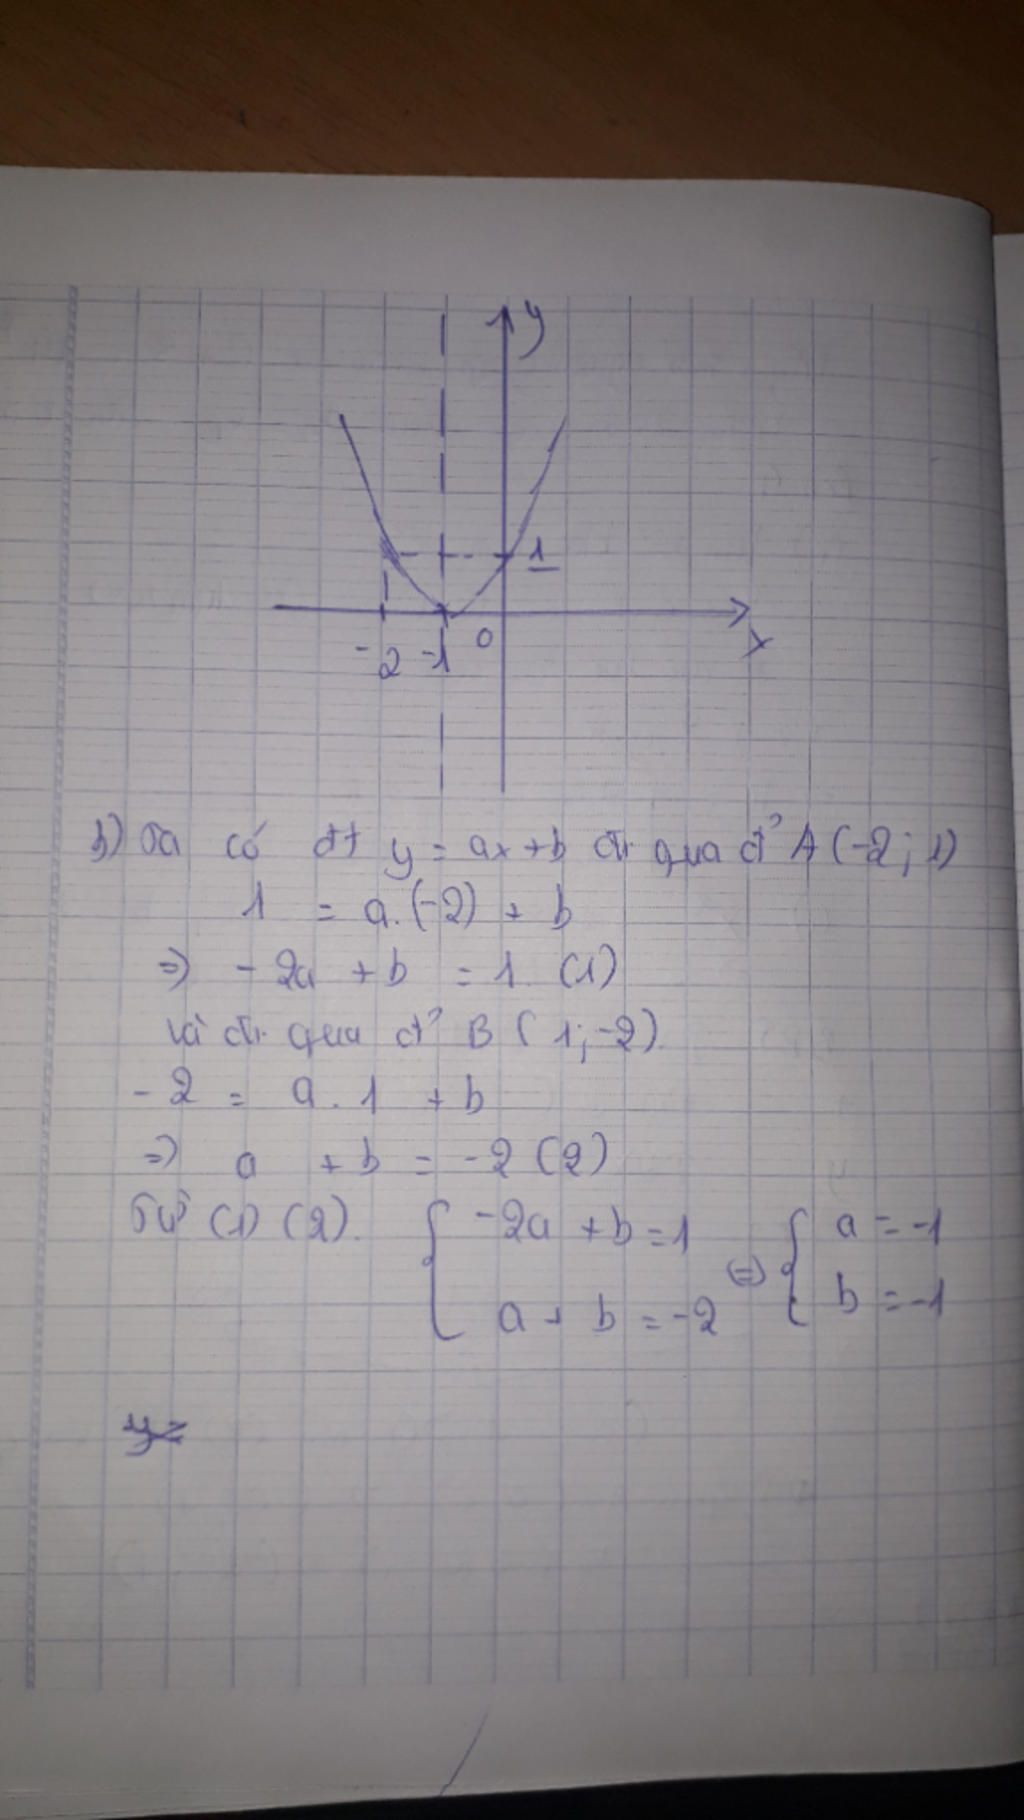 y
1
-2 -1 0 x
b) Ta có đt y = ax + b đi qua đ' A (-2; 1)
1 = a.(-2) + b
=> -2a + b = 1 (1)
và đi qua đ' B (1; -2)
-2 = a . 1 + b
=> a + b = -2 (2)
Từ (1) (2). { -2a + b = 1 <=> { a = -1
a + b = -2 b = -1
y=